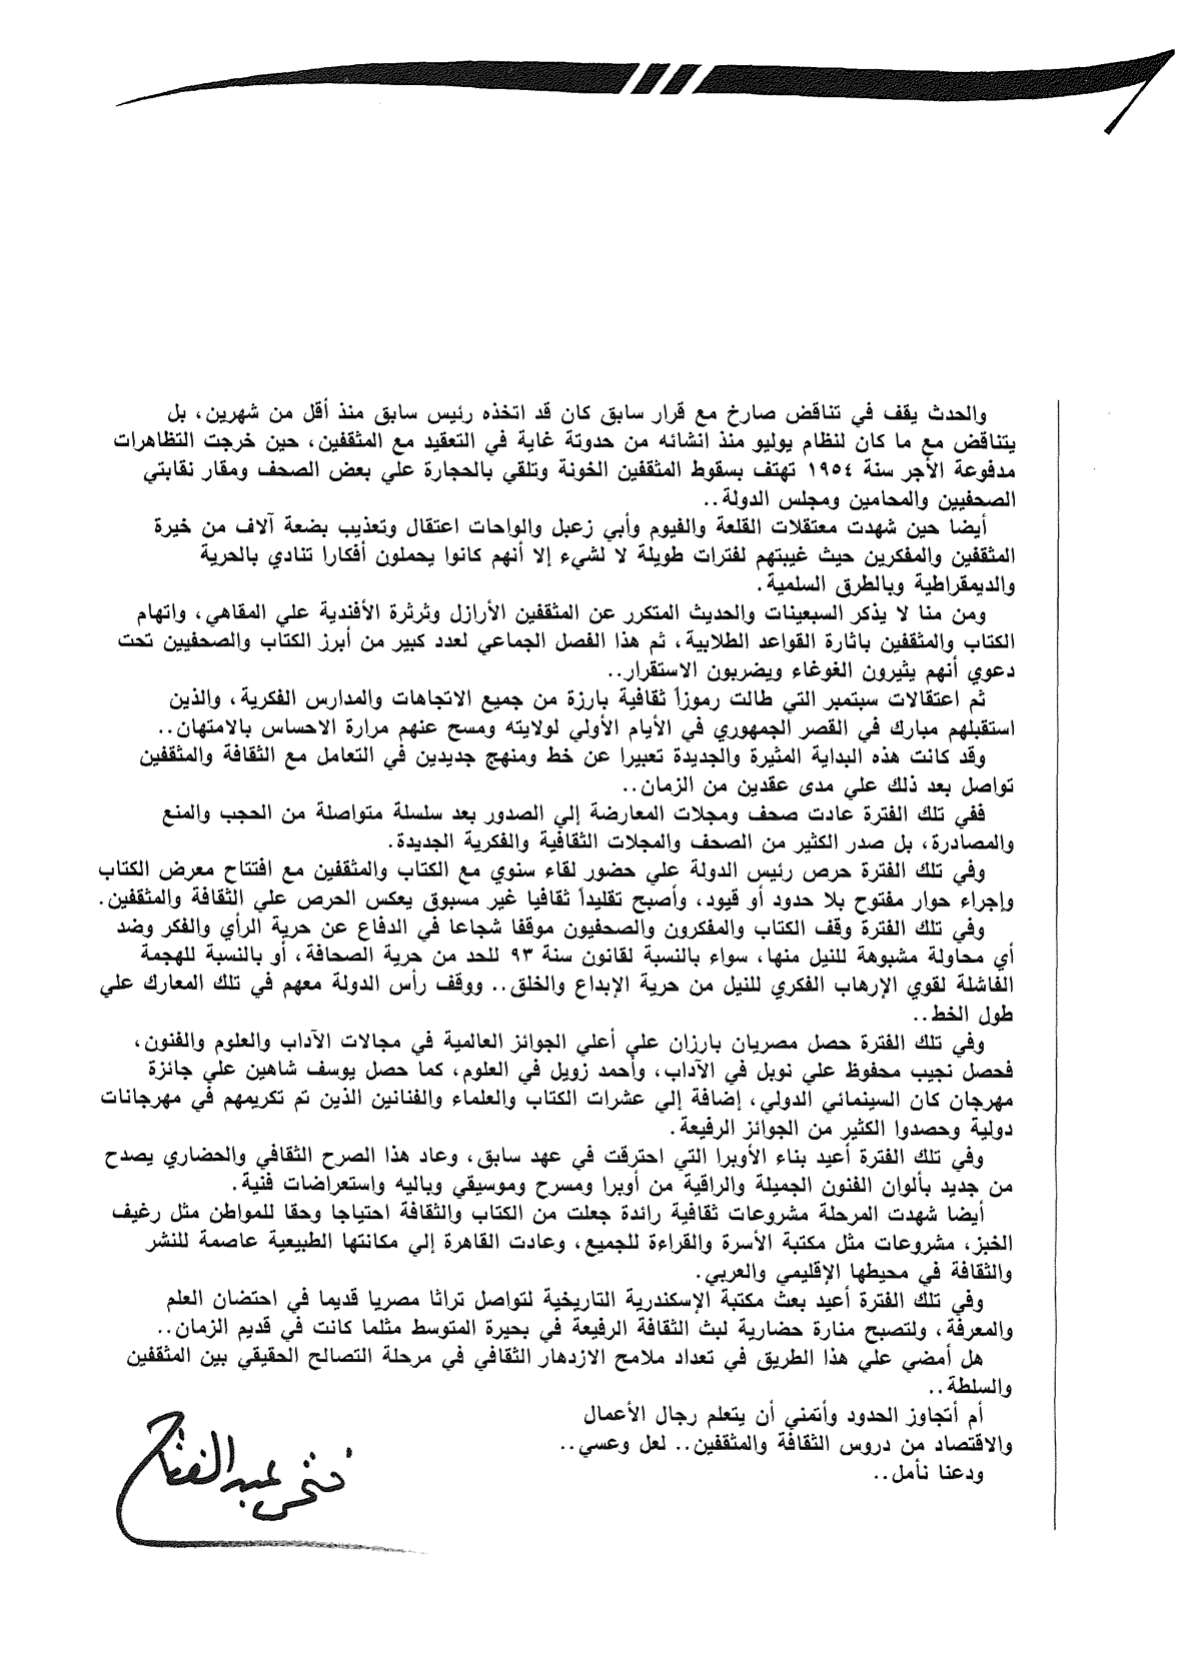 والحدث يقف في تناقض صارخ مع قرار سابق كان قد اتخذه رئيس سابق منذ أقل من شهرين، بل
يتناقض مع ما كان لنظام يوليو منذ انشائه من حدوتة غاية في التعقيد مع المثقفين، حين خرجت التظاهرات
مدفوعة الأجر سنة ١٩٥٤ تهتف بسقوط المثقفين الخونة وتلقي بالحجارة علي بعض الصحف ومقار نقابتي
الصحفيين والمحامين ومجلس الدولة..
أيضا حين شهدت معتقلات القلعة والفيوم وأبي زعبل والواحات اعتقال وتعذيب بضعة آلاف من خيرة
المثقفين والمفكرين حيث غيبتهم لفترات طويلة لا لشيء إلا أنهم كانوا يحملون أفكارا تنادي بالحرية
والديمقراطية وبالطرق السلمية.
ومن منا لا يذكر السبعينات والحديث المتكرر عن المثقفين الأرازل وثرثرة الأفندية علي المقاهي، واتهام
الكتاب والمثقفين باثارة القواعد الطلابية، ثم هذا الفصل الجماعي لعدد كبير من أبرز الكتاب والصحفيين تحت
دعوي أنهم يثيرون الغوغاء ويضربون الاستقرار..
ثم اعتقالات سبتمبر التي طالت رموزاً ثقافية بارزة من جميع الاتجاهات والمدارس الفكرية، والذين
استقبلهم مبارك في القصر الجمهوري في الأيام الأولي لولايته ومسح عنهم مرارة الاحساس بالامتهان..
وقد كانت هذه البداية المثيرة والجديدة تعبيرا عن خط ومنهج جديدين في التعامل مع الثقافة والمثقفين
تواصل بعد ذلك علي مدى عقدين من الزمان..
ففي تلك الفترة عادت صحف ومجلات المعارضة إلي الصدور بعد سلسلة متواصلة من الحجب والمنع
والمصادرة، بل صدر الكثير من الصحف والمجلات الثقافية والفكرية الجديدة.
وفي تلك الفترة حرص رئيس الدولة علي حضور لقاء سنوي مع الكتاب والمثقفين مع افتتاح معرض الكتاب
وإجراء حوار مفتوح بلا حدود أو قيود، وأصبح تقليداً ثقافيا غير مسبوق يعكس الحرص علي الثقافة والمثقفين.
وفي تلك الفترة وقف الكتاب والمفكرون والصحفيون موقفا شجاعا في الدفاع عن حرية الرأي والفكر وضد
أي محاولة مشبوهة للنيل منها، سواء بالنسبة لقانون سنة ٩٣ للحد من حرية الصحافة، أو بالنسبة للهجمة
الفاشلة لقوي الإرهاب الفكري للنيل من حرية الإبداع والخلق.. ووقف رأس الدولة معهم في تلك المعارك علي
طول الخط..
وفي تلك الفترة حصل مصريان بارزان علي أعلي الجوائز العالمية في مجالات الآداب والعلوم والفنون،
فحصل نجيب محفوظ علي نوبل في الآداب، وأحمد زويل في العلوم، كما حصل يوسف شاهين علي جائزة
مهرجان كان السينمائي الدولي، إضافة إلي عشرات الكتاب والعلماء والفنانين الذين تم تكريمهم في مهرجانات
دولية وحصدوا الكثير من الجوائز الرفيعة.
وفي تلك الفترة أعيد بناء الأوبرا التي احترقت في عهد سابق، وعاد هذا الصرح الثقافي والحضاري يصدح
من جديد بألوان الفنون الجميلة والراقية من أوبرا ومسرح وموسيقي وباليه واستعراضات فنية.
أيضا شهدت المرحلة مشروعات ثقافية رائدة جعلت من الكتاب والثقافة احتياجا وحقا للمواطن مثل رغيف
الخبز، مشروعات مثل مكتبة الأسرة والقراءة للجميع، وعادت القاهرة إلي مكانتها الطبيعية عاصمة للنشر
والثقافة في محيطها الإقليمي والعربي.
وفي تلك الفترة أعيد بعث مكتبة الإسكندرية التاريخية لتواصل تراثا مصريا قديما في احتضان العلم
والمعرفة، ولتصبح منارة حضارية لبث الثقافة الرفيعة في بحيرة المتوسط مثلما كانت في قديم الزمان..
هل أمضي علي هذا الطريق في تعداد ملامح الازدهار الثقافي في مرحلة التصالح الحقيقي بين المثقفين
والسلطة..
أم أتجاوز الحدود وأتمني أن يتعلم رجال الأعمال
والاقتصاد من دروس الثقافة والمثقفين.. لعل وعسي..
ودعنا نأمل..
فتحي عبد الفتاح